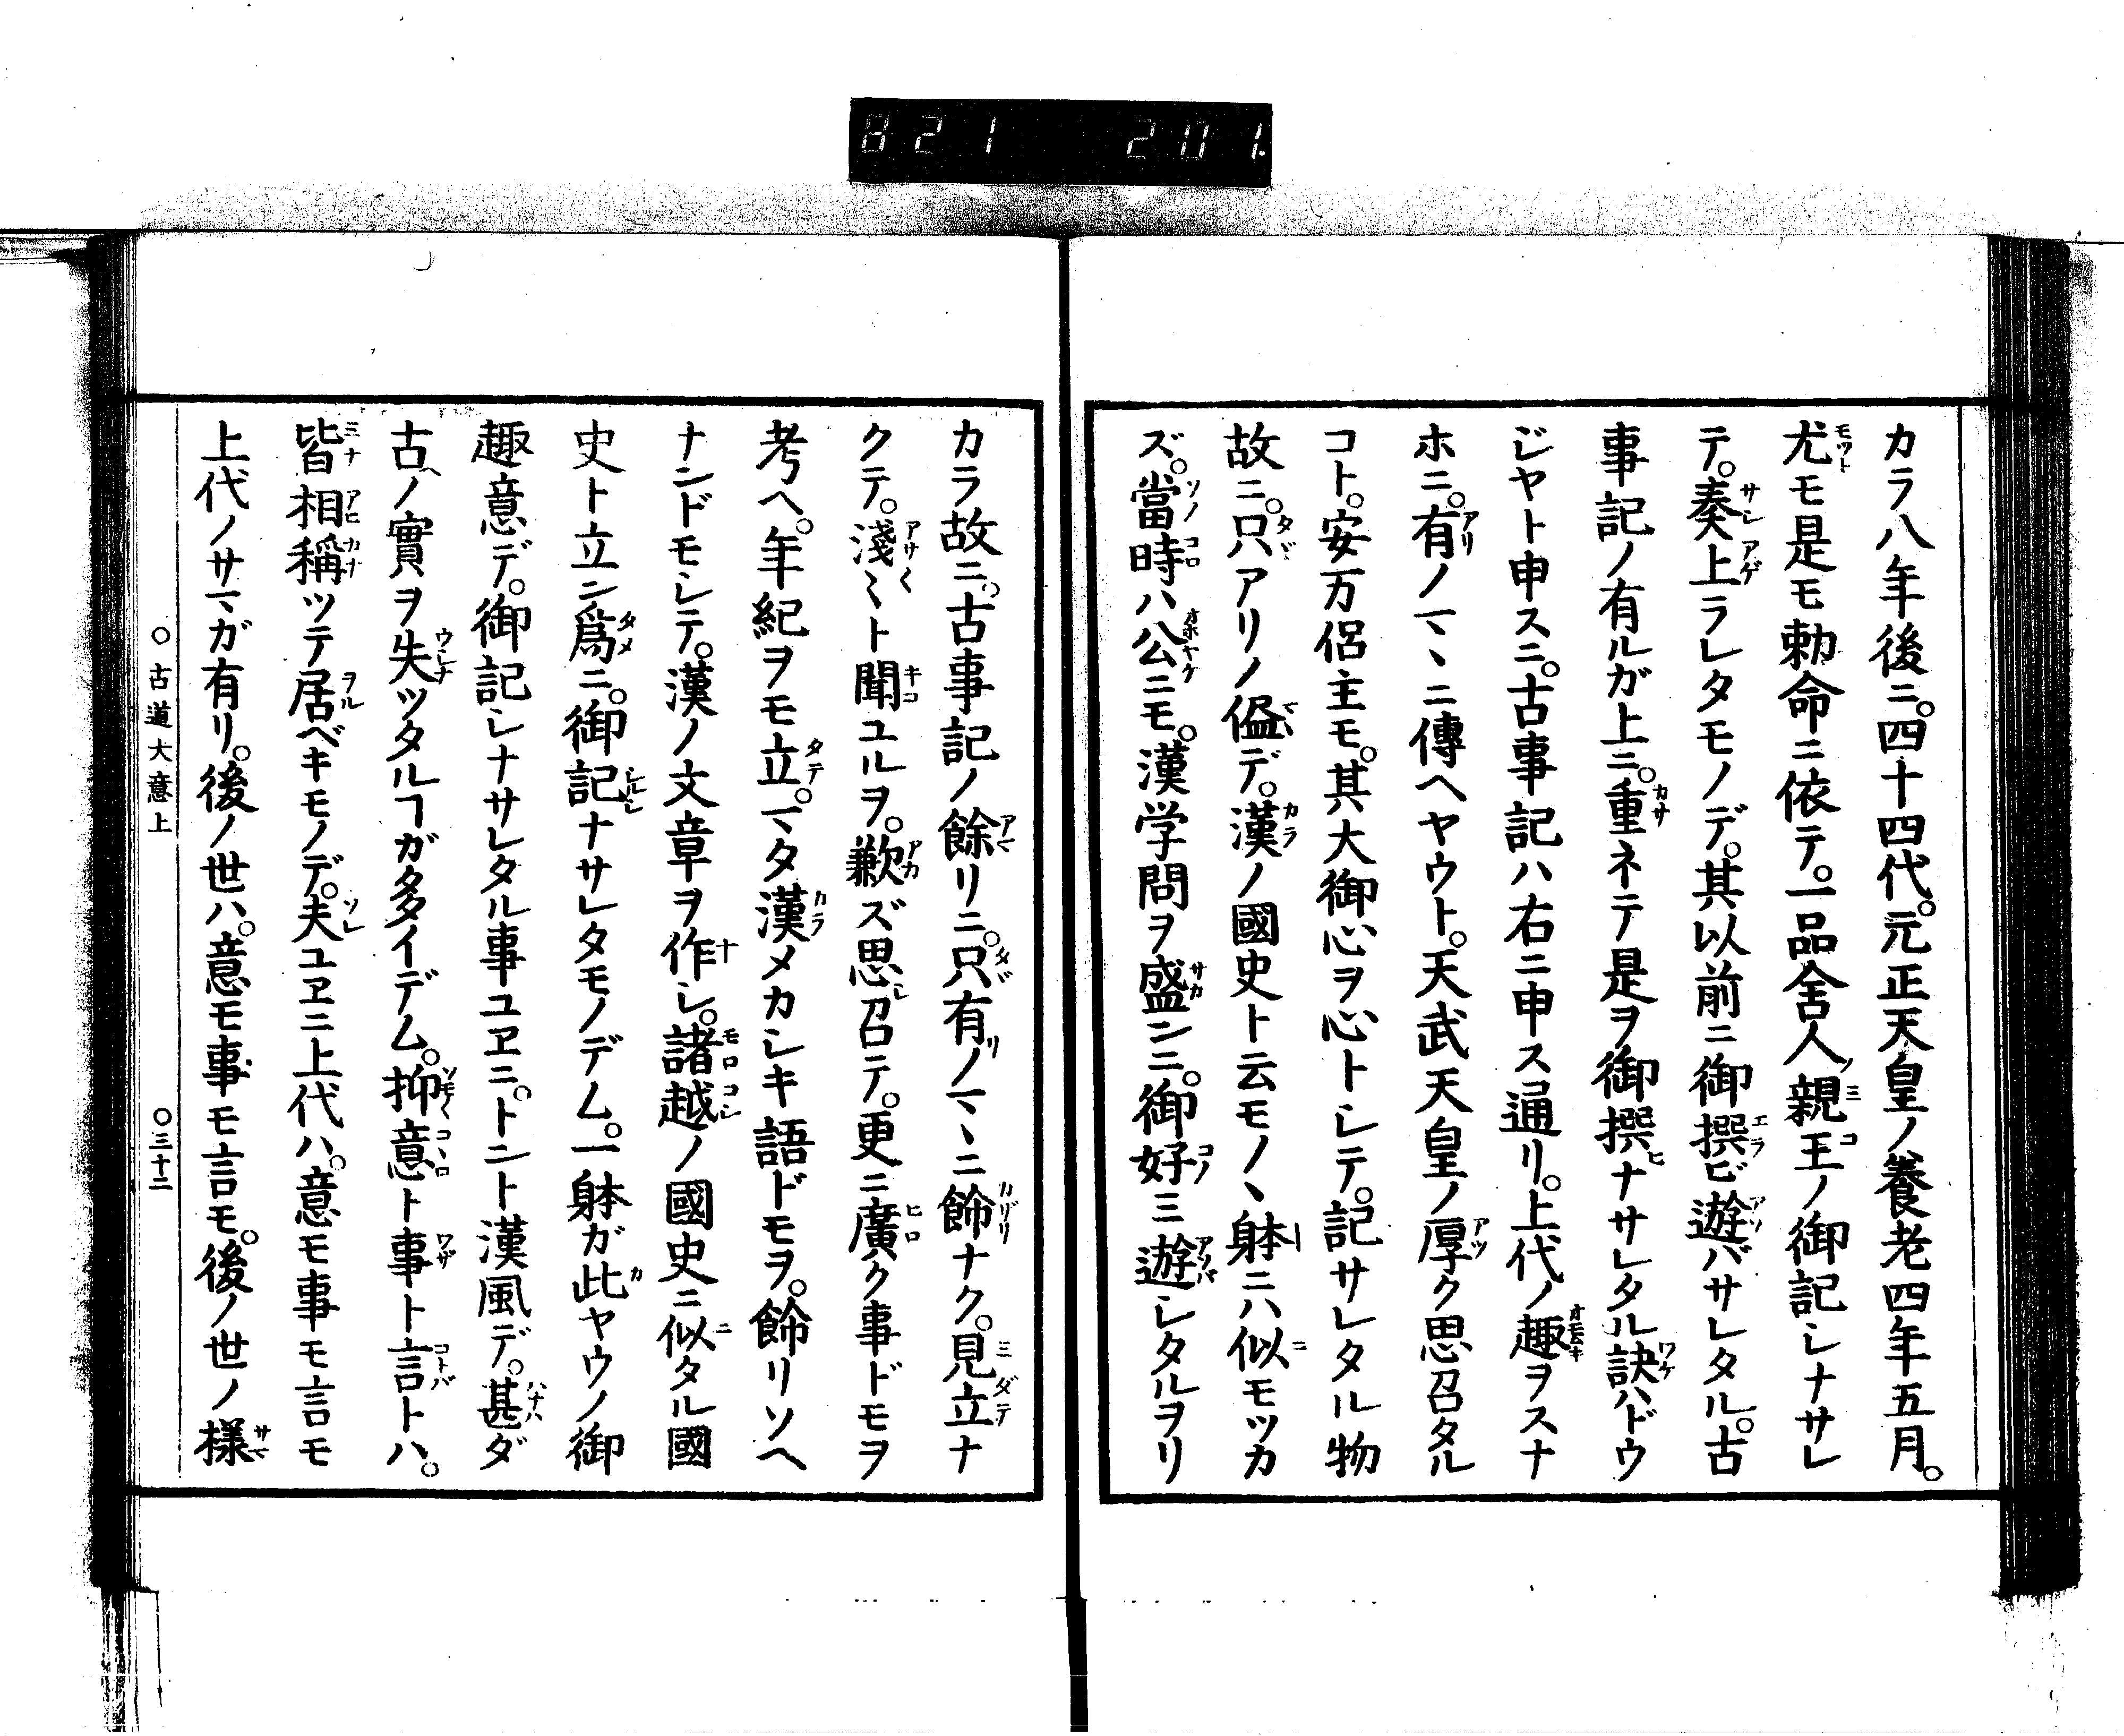 821 201.
カラ八年後ニ。四十四代。元正天皇ノ養老四年五月。
尤モ是モ勅命ニ依テ。一品舍人親王ノ御記シナサレ
テ。奏上ラレタモノデ。其以前ニ御撰ビ遊バサレタル。古
事記ノ有ルガ上ニ。重ネテ是ヲ御撰ナサレタル訣ハドウ
ジヤト申スニ。古事記ハ右ニ申ス通リ。上代ノ趣ヲスナ
ホニ。有ノマヽニ傳ヘヤウト。天武天皇ノ厚ク思召タル
コト。安万侶主モ。其大御心ヲ心トシテ。記サレタル物
故ニ。只アリノ儘デ。漢ノ國史ト云モノヽ躰ニハ似モツカ
ズ。當時ハ公ニモ。漢学問ヲ盛ンニ。御好ミ遊シタルヲリ
カラ故ニ。古事記ノ餘リニ。只有ノマヽニ餝ナク。見立ナ
クテ。淺〻ト聞ユルヲ。歉ズ思召テ。更ニ廣ク事ドモヲ
考ヘ。年紀ヲモ立。マタ漢メカシキ語ドモヲ。餝リソヘ
ナンドモシテ。漢ノ文章ヲ作シ。諸越ノ國史ニ似タル國
史ト立ン爲ニ。御記ナサレタモノデム。一躰ガ此ヤウノ御
趣意デ。御記シナサレタル事ユヱニ。トント漢風デ。甚ダ
古ノ實ヲ失ツタルヿガ多イデム。抑意ト事ト言トハ。
皆相稱ツテ居ベキモノデ。夫ユヱニ上代ハ。意モ事モ言モ
上代ノサマガ有リ。後ノ世ハ。意モ事モ言モ。後ノ世ノ樣
○古道大意上 ○三十二